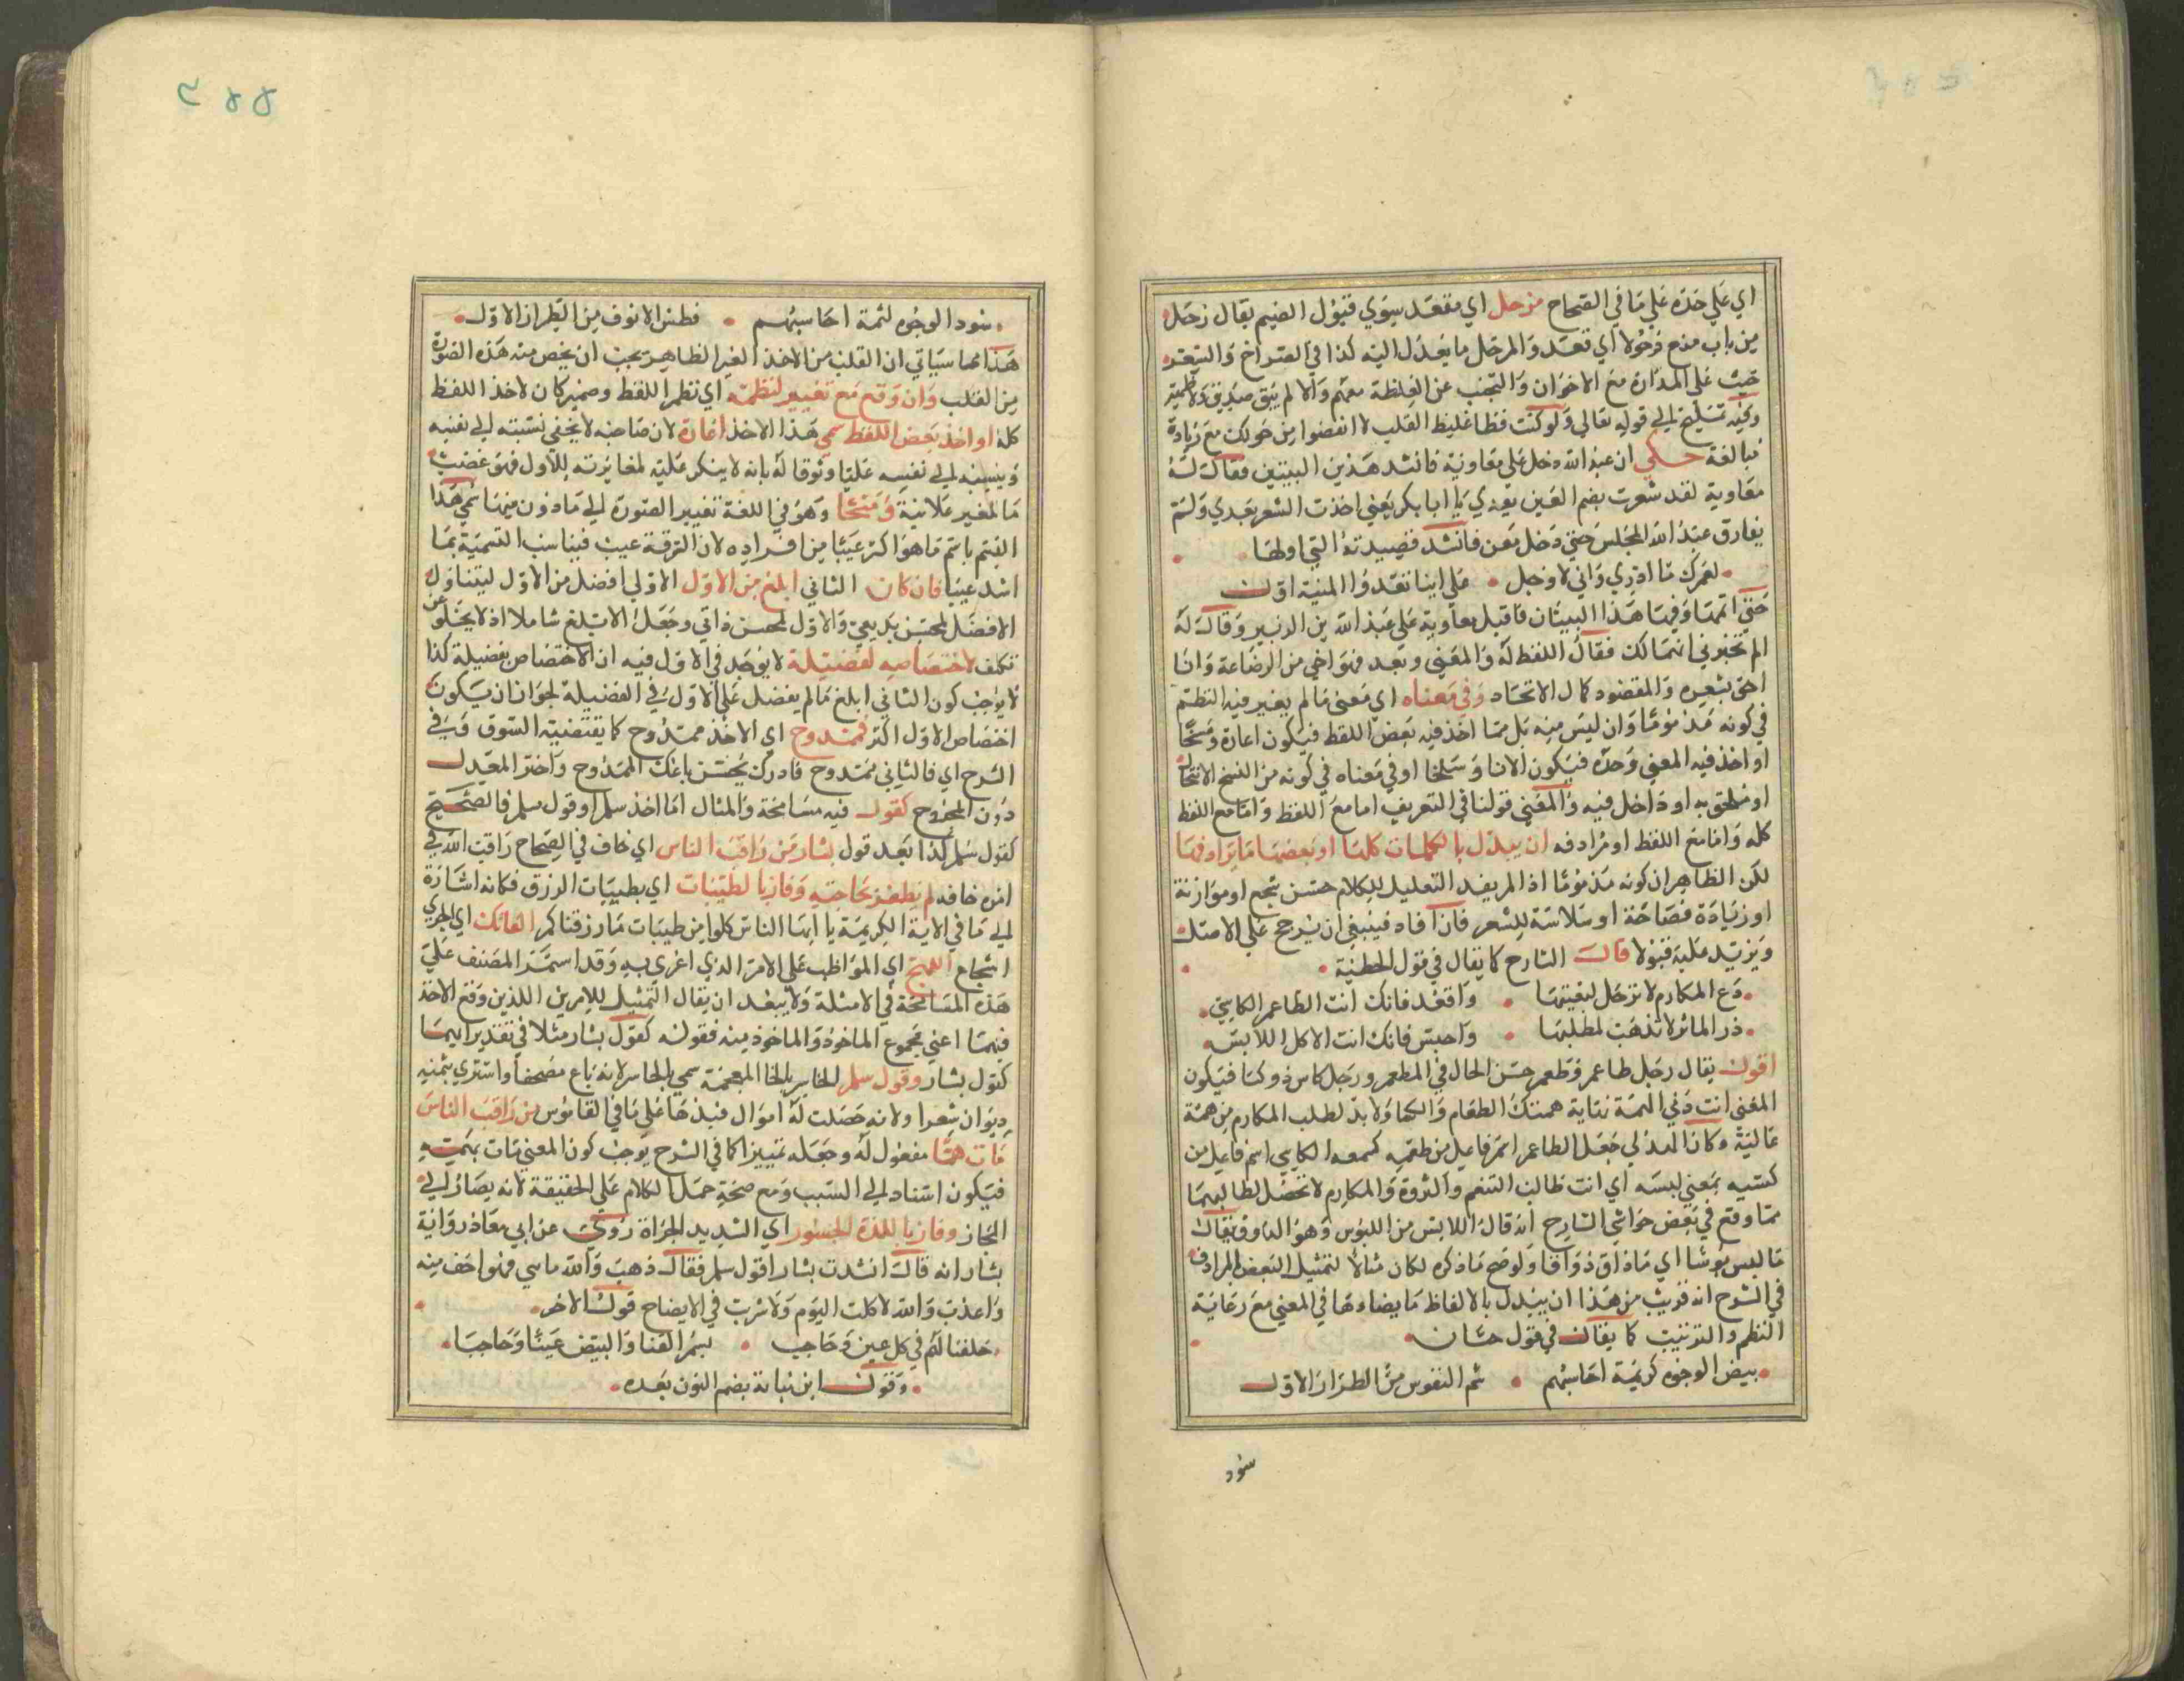 اي علي حده علي ما في الصحاح مزحل اي مقعد سوي قبول الضيم يقال زحل
من باب منع زحولا اي تعد والمزحل ما يعدل اليه كذا في الصراح والبيت
حث علي المدارة مع الاخوان والتجنب عن الغلظة معهم والا لم يبق صديق
وفيه تلميح الي قوله تعالي ولو كنت فظا غليظ القلب لا انفضوا من حولك مع زيادة
مبالغة حكي ان عبد الله دخل علي معاوية فانشد هذين البيتين فقال له
معاوية لقد شعرت بضم العين بعدي يا ابا بكر يعني اخذت الشعر بعدي ولم
يفارق عبد الله المجلس حتي دخل معن فانشد قصيدته التي اولها
لعمرك ما ادري واني لاوجل علي اينا تغدوا المنية اول
حتي اتمها وفيها هذا البيتان فاقبل معاوية علي عبد الله بن الزبير وقال له
الم تخبرني انهما لك فقال اللفظ له والمعني وبعد فهو اخي من الرضاعة وانا
احق بشعره والمقصود كمال الاتحاد وفي معناه اي معني ما لم يغير فيه النظم
في كونه مذموما وان ليس منه بل مما اخذ فيه بعض اللفظ فيكون اغارة ومسخا
او اخذ فيه المعني وحده فيكون الاما وسلخا او في معناه في كونه من النسخ الانتحال
او ملحق به او داخل فيه والمعني قولنا في التعريف اما مع اللفظ واما مع اللفظ
كله واما مع اللفظ او مرادفه ان يبدل بالكلمات كلها او بعضها ما يرادفها
لكن الظاهر ان كونه مذموما اذا لم يفد التعليل للكلام حسن سجع او موازنة
او زيادة فصاحة او سلاسة للشعر فان افاد فينبغي ان يرجح علي الاصل
ويزيد عليه قبولا قال الشارح كما يقال في قول الحطيئة
دع المكارم لا ترحل لبغيتها واقعد فانك انت الطاعم الكاسي
ذر الماثر لا تذهب لمطلبها واجلس فانك انت الاكل اللابس
اقول يقال رجل طاعم وطعم حسن الحال في المطعم ورجل كاس ذو كسا فيكون
المعني انت دني الهمة نهاية همتك الطعام والكسا ولا بد لطلب المكارم من همة
عالية وكان المدلي جعل الطاعم اسم فاعل من طعمه كسمعه الكاسي اسم فاعل من
كسيه بمعني لبسه اي انت طالب التنعم والثروة والمكارم لا تحصل لطالبهما
مما وقع في بعض حواشي الشارح انه قال اللابس من اللبوس وهو الذوق يقال
ما لبس بوسا اي ما ذاق ذواقا ولو صح ما ذكره لكان مثالا لتمثيل البعض المرادف
في الشرح انه قريب من هذا ان يبدل بالالفاظ ما يضادها في المعني مع رعاية
النظم والترتيب كما يقال في قول حسان
بيض الوجوه كريمة احسابهم شم الانوف من الطراز الاول
سود
سود الوجوه لئمة احسابهم فطس الانوف من الطراز الاول
هذا مما سياتي ان القلب من الاخذ الغير الظاهر يجب ان يخص منه هذه الصورة
من القلب وان وقع مع تغيير لنظمه اي نظم اللفظ وضمير كان لاخذ اللفظ
كله او اخذ بعض اللفظ سمي هذا الاخذ اغارة لان صاحبه لا يخفي نسبته الي نفسه
وينسبه الي نفسه علنا وثوقا له بانه لا ينكر عليه لمغايرته للاول فهو غصب
مال الغير علانية ومسخا وهو في اللغة تغيير الصورة الي ما دون منها سمي هذا
القسم باسم ما هو اكثر عيبا من افراده لان السرقة عيب فيناسب التسمية بما
اشد عيبا فان كان الثاني ابلغ من الاول الاولي افضل من الاول ليتناول
الافضل لحسن بديعي والاول لحسن ذاتي وجعل الابلغ شاملا اذ لا يخلو عن
تكلف لاختصاصه لفضيلة لا يوجد في الاول فيه ان الاختصاص بفضيلة كذا
لا يوجب كون الثاني ابلغ ما لم يفضل علي الاول في الفضيلة لجواز ان يكون
اختصاص الاول اكثر فممدوح اي الاخذ ممدوح كما يقتضيه السوق وفي
الشرح اي فالثاني ممدوح فادرك بحسن باعك الممدوح واختر المعدل
دون المجروح كقول فيه مسامحة والمثال اما اخذ سلم او قول سلم فالصحيح
كقول سلم كذا بعد قول بشار من راقب الناس اي خاف في الصحاح راقب الله في
امره خافه لم يظفر بحاجته وفاز بالطيبات اي بطيبات الرزق فكانه اشارة
الي ما في الاية الكريمة يا ايها الناس كلوا من طيبات ما رزقناكم الفاتك اي الجري
الشجاع اللهج اي المواظب علي الامر الذي اغري به وقد استمر المصنف علي
هذه المسامحة في الامثلة ولا يبعد ان يقال التمثيل للامرين اللذين وقع الاخذ
فيهما اعني مجموع الماخوذ والماخوذ منه فقوله كقول بشار مثلا في تقدير ايهما
كقول بشار وقول سلم الخاسر بالخا المعجمة سمي بالخاسر لانه باع مصحفا واشتري بثمنه
ديوان شعرا ولانه حصلت له اموال فبذرها علي ما في القاموس من راقب الناس
مات هما مفعول له وجعله تمييزا كما في الشرح يوجب كون المعني مات بهمه
فيكون اسناد الي السبب ومع صحة حمل الكلام علي الحقيقة لانه يصار الي
المجاز وفاز باللذة الجسور اي الشديد الجراة روي عن ابي معاذ رواية
بشار انه قال انشدت بشارا قول سلم فقال ذهب والله ماسي فهو اخف منه
واعذب والله لا كلت اليوم ولا شربت في الايضاح قول الاخر
خلفنا لهم في كل عين وحاجب بسمر القنا والبيض عينا وحاجبا
وقول ابن نباتة بضم النون بعده